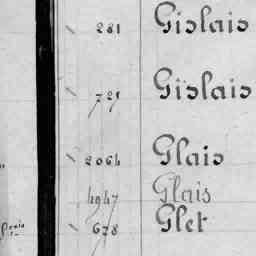 281 Gislais
721 Gïslais
2064 Glais
4947 Glais
628 Glet